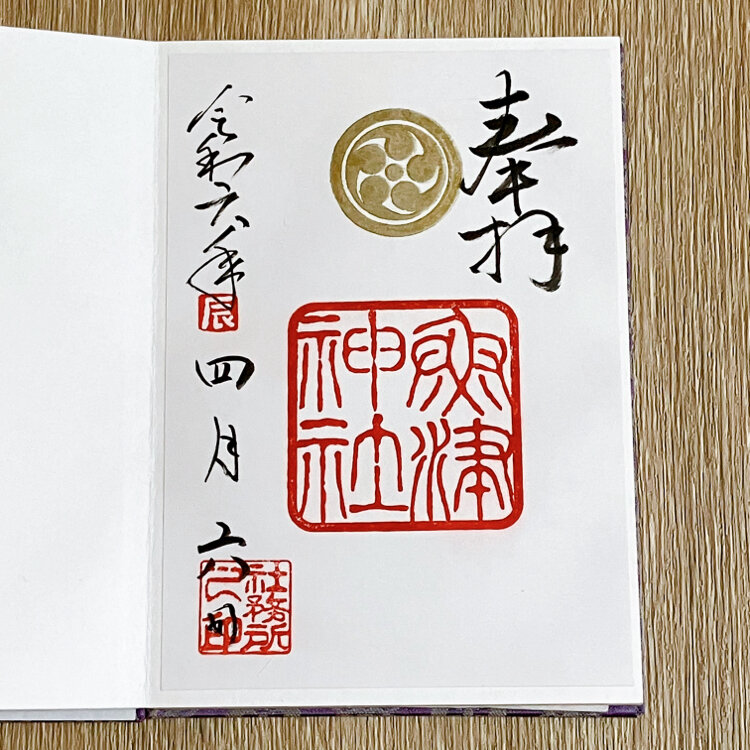 奉拝
津
神社
令和六年
辰
四月
六日
社務所
之印